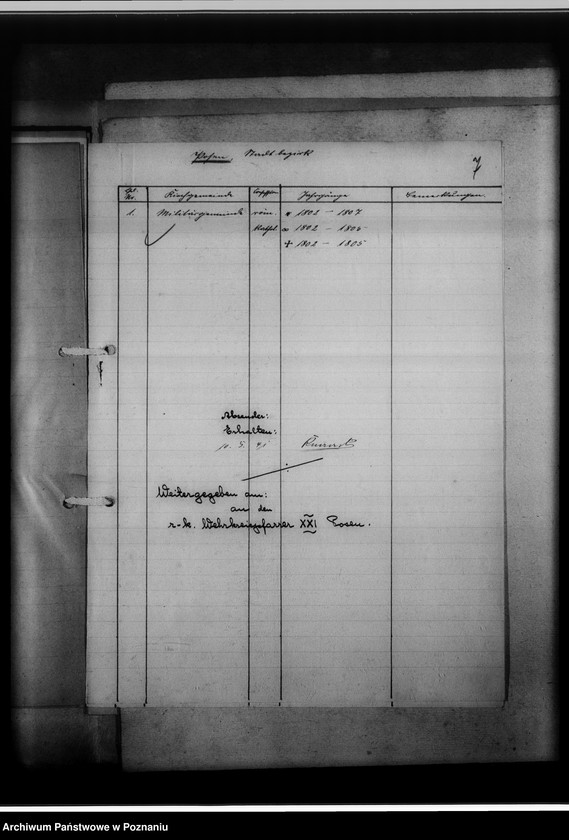 Posen, Stadtbezirk
7
Lfd. Nr. Kirchgemeinde Jahrgänge Bemerkungen
1. Militärgemeinde röm. * 1802 – 1807
kathol. ∞ 1802 – 1806
+ 1802 – 1805
Absender:
Erhalten:
10. 5. 41
Weitergegeben am:
an den
r-k. Wehrkreispfarrer XXI Posen.
Archiwum Państwowe w Poznaniu